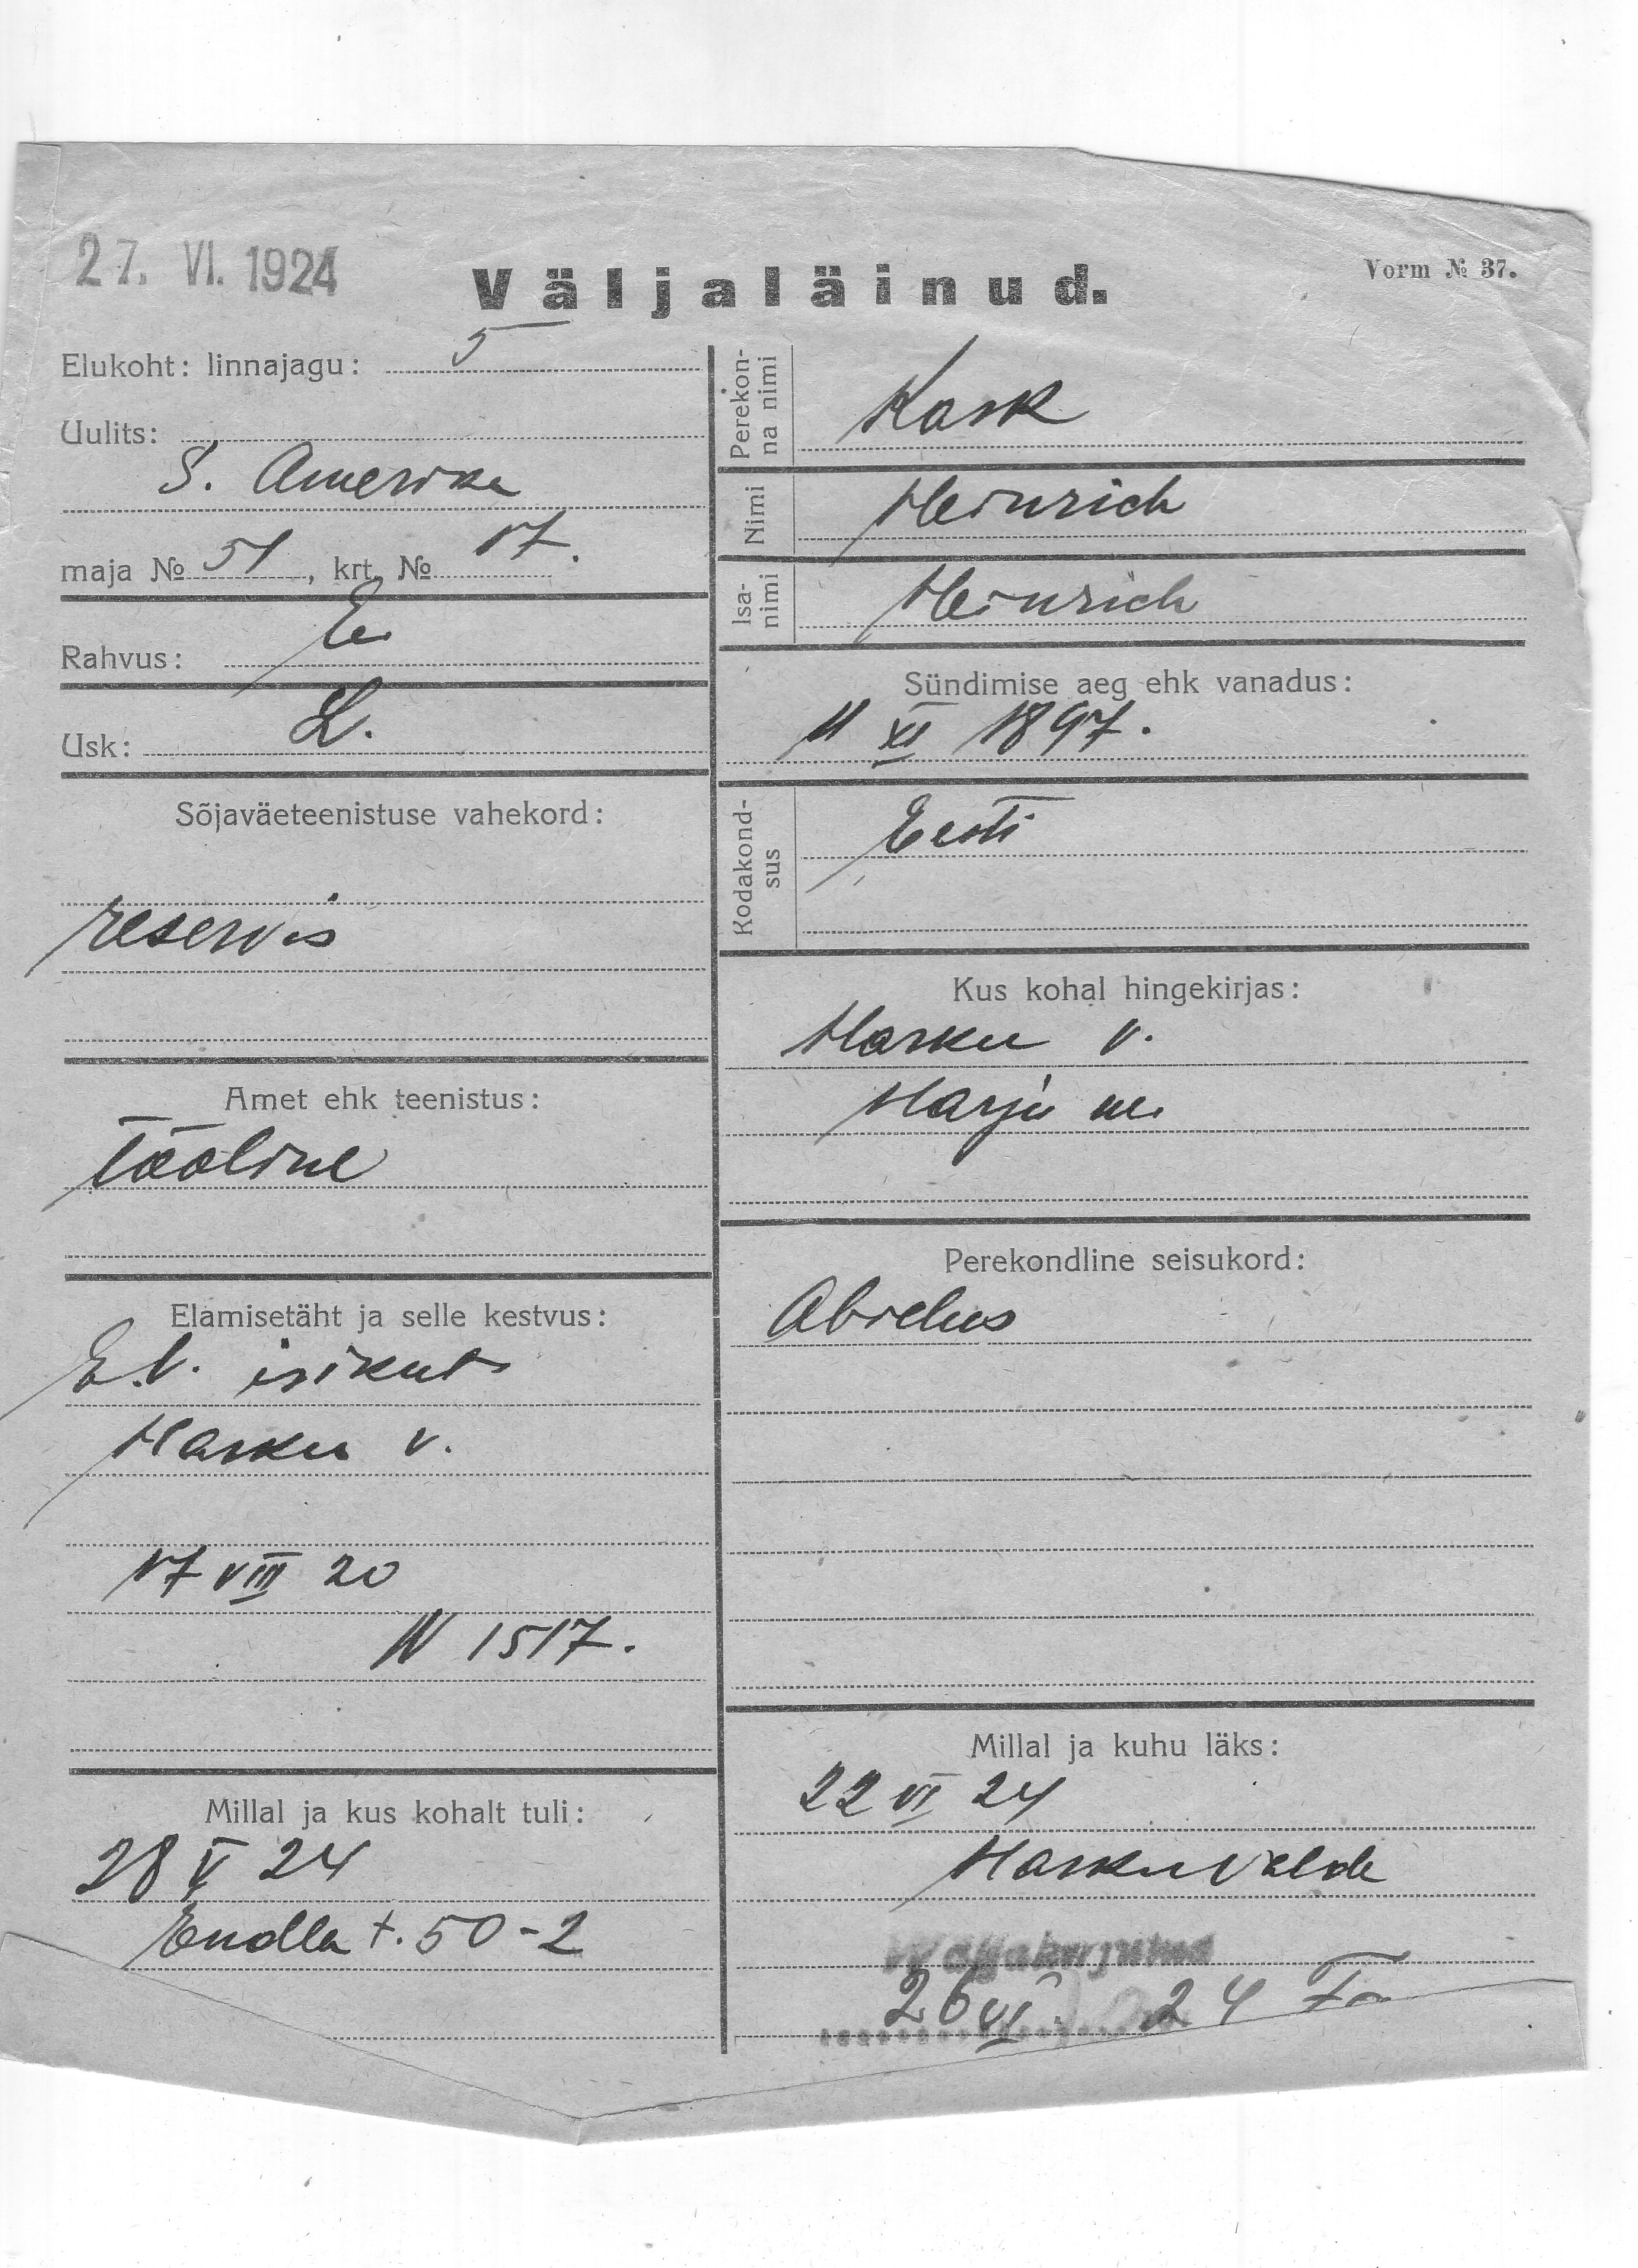 27. VI. 1924
Väljaläinud.
Vorm № 37.
Elukoht: linnajagu: 5
Uulits:
S. Amerika
maja № 51, krt. № 17.
Rahvus: Ee.
Usk: L.
Sõjaväeteenistuse vahekord:
reservis
Amet ehk teenistus:
Tööline
Elamisetäht ja selle kestvus:
E.V. isikut
Harku v.
17 VIII 20
N 1517.
Millal ja kus kohalt tuli:
28 V 24
Endla t. 50-2
Perekonna nimi
Kask
Nimi
Heinrich
Isanimi
Heinrich
Sündimise aeg ehk vanadus:
11 XI 1897.
Kodakondsus
Eesti
Kus kohal hingekirjas:
Harku v.
Harju m.
Perekondline seisukord:
Abielus
Millal ja kuhu läks:
22 VI 24
Harku valda
Väljakirjutud
26 VI 24